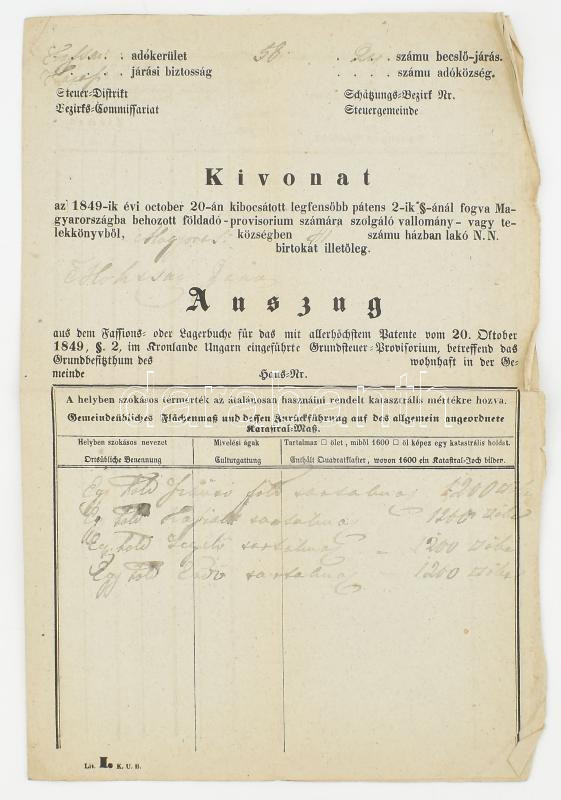 : adókerület 58. számu becslő-járás.
: járási biztosság . . . . számu adóközség.
Steuer-Distrikt Schätzungs-Bezirk Nr.
Bezirks-Commissariat Steuergemeinde
Kivonat
az 1849-ik évi october 20-án kibocsátott legfensöbb pátens 2-ik §-ánál fogva Ma-
gyarországba behozott földadó-provisorium számára szolgáló vallomány- vagy te-
lekkönyvből, községben számu házban lakó N. N.
birtokát illetőleg.
Auszug
aus dem Fassions- oder Lagerbuche für das mit allerhöchstem Patente vom 20. Oktober
1849, §. 2, im Kronlande Ungarn eingeführte Grundsteuer-Provisorium, betreffend das
Grundbesitzthum des wohnhaft in der Ge-
meinde Haus-Nr.
A helyben szokásos térmérték az átalánosan használni rendelt katasztrális mértékre hozva.
Gemeindeübliches Flächenmaß und dessen Zurückführung auf das allgemein angeordnete
Katastral-Maß.
Helyben szokásos nevezet Mivelési ágak Tartalmaz □ ölet, miből 1600 □ öl képez egy katasztrális holdat.
Ortsübliche Benennung Culturgattung Enthält Quadratklafter, wovon 1600 ein Katastral-Joch bilden.
Egy hold föld 1200
hold 1200
Egy hold 1200
Egy hold 1200
Lit. I. K. U. B.
darabanth